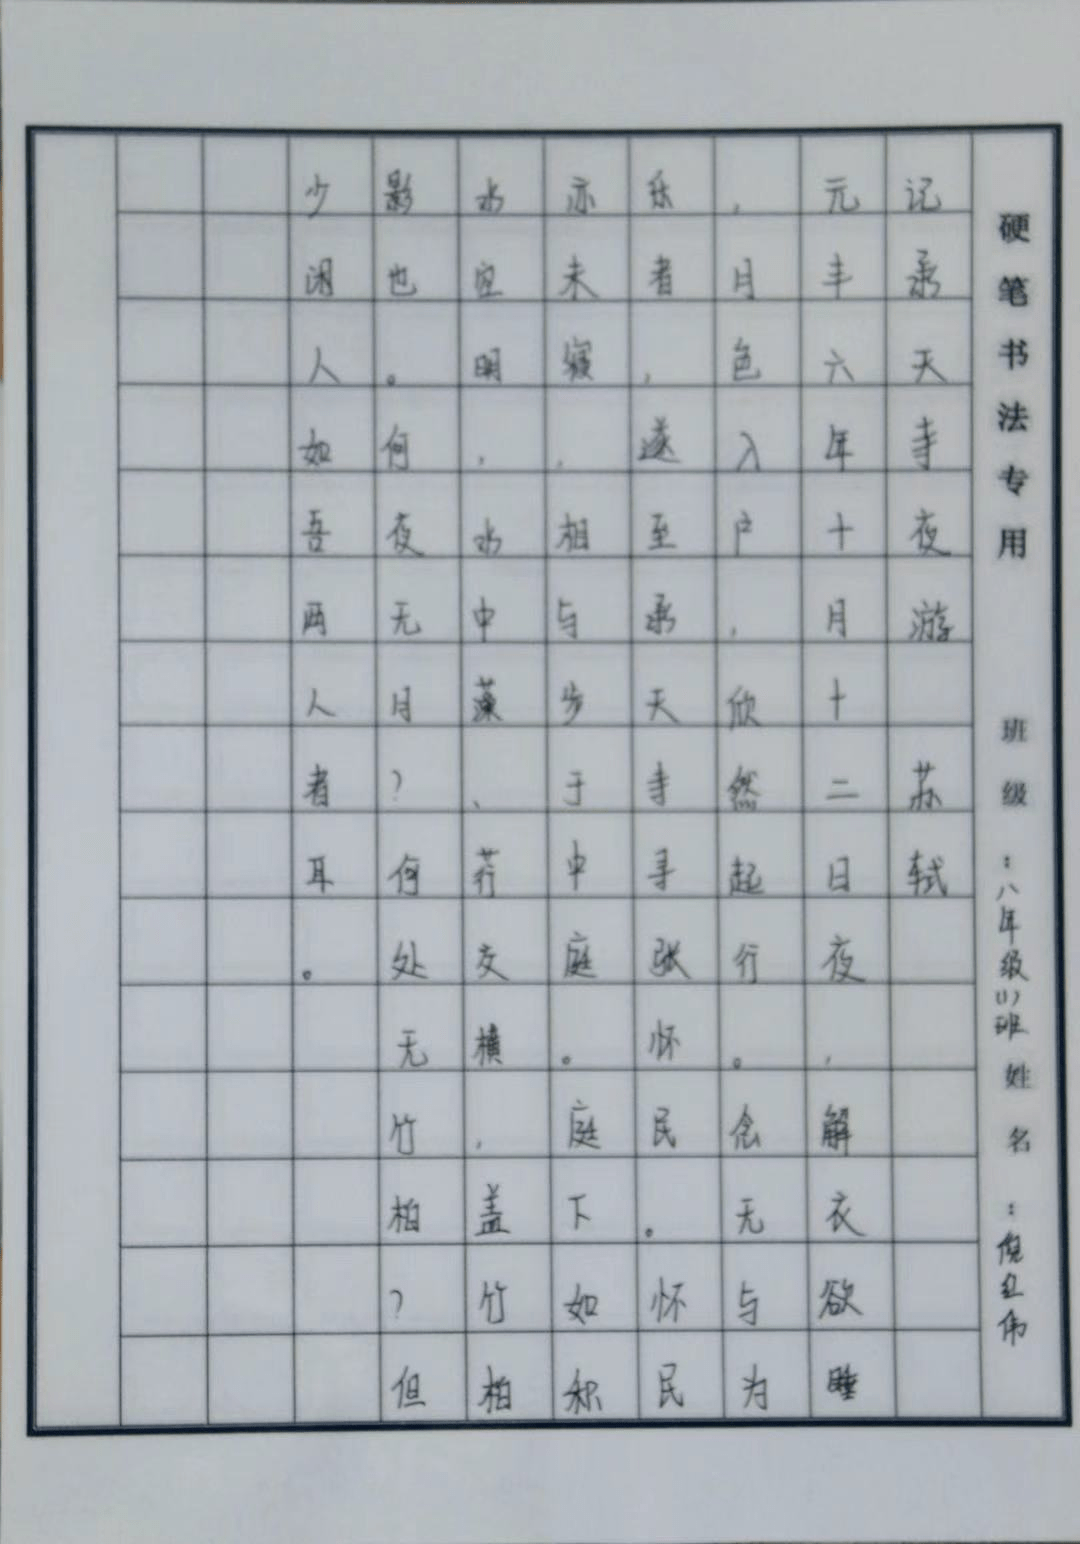 硬笔书法专用 班级:八年级(1)班 姓名:
记承天寺夜游 苏轼
元丰六年十月十二日夜,解衣欲睡
,月色入户,欣然起行。念无与为
乐者,遂至承天寺寻张怀民。怀民
亦未寝,相与步于中庭。庭下如积
水空明,水中藻、荇交横,盖竹柏
影也。何夜无月?何处无竹柏?但
少闲人如吾两人者耳。